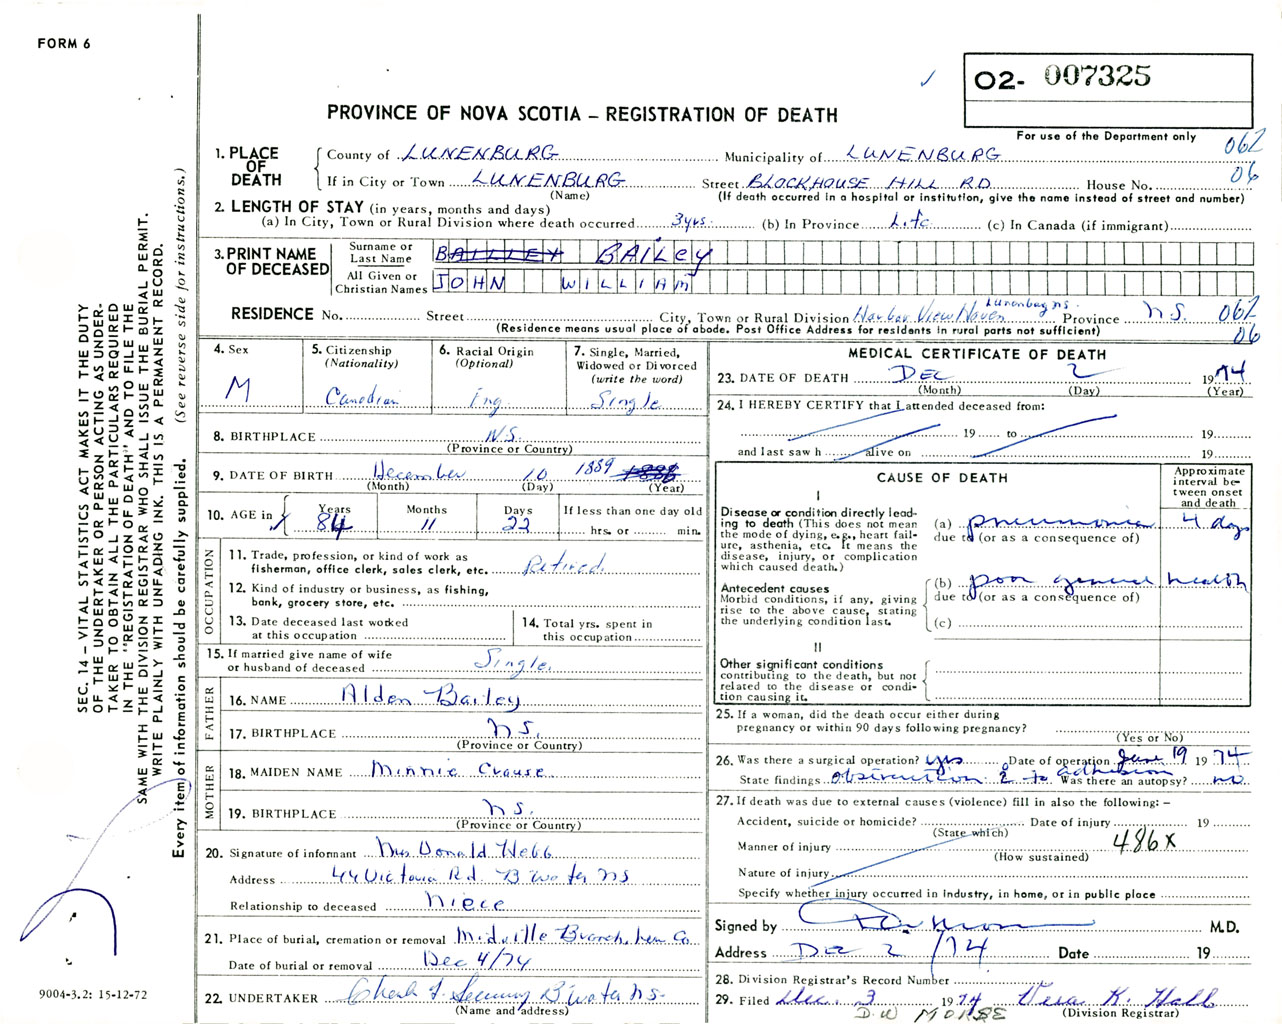 FORM 6
O2- 007325
PROVINCE OF NOVA SCOTIA – REGISTRATION OF DEATH
For use of the Department only
062
06
1. PLACE OF DEATH
County of LUNENBURG Municipality of LUNENBURG
If in City or Town LUNENBURG Street BLOCKHOUSE HILL RD House No.
(Name) (If death occurred in a hospital or institution, give the name instead of street and number)
2. LENGTH OF STAY (in years, months and days)
(a) In City, Town or Rural Division where death occurred 3yrs. (b) In Province Life (c) In Canada (if immigrant)
3. PRINT NAME OF DECEASED
Surname or Last Name BAILLEY BAILEY
All Given or Christian Names JOHN WILLIAM
RESIDENCE No. Street City, Town or Rural Division Harbor View Haven Lunenburg ns. Province N.S. 062
(Residence means usual place of abode. Post Office Address for residents in rural parts not sufficient) 06
4. Sex M
5. Citizenship (Nationality) Canadian
6. Racial Origin (Optional) Eng.
7. Single, Married, Widowed or Divorced (write the word) Single
8. BIRTHPLACE N.S.
(Province or Country)
9. DATE OF BIRTH December 10 1889 1886
(Month) (Day) (Year)
10. AGE in Years 84 Months 11 Days 22 If less than one day old hrs. or min.
OCCUPATION
11. Trade, profession, or kind of work as fisherman, office clerk, sales clerk, etc. Retired
12. Kind of industry or business, as fishing, bank, grocery store, etc.
13. Date deceased last worked at this occupation
14. Total yrs. spent in this occupation
15. If married give name of wife or husband of deceased Single
FATHER
16. NAME Alden Bailey
17. BIRTHPLACE N.S.
(Province or Country)
MOTHER
18. MAIDEN NAME Minnie Crouse
19. BIRTHPLACE N.S.
(Province or Country)
20. Signature of informant Mrs Donald Hebb
Address 44 Victoria Rd. B'water NS
Relationship to deceased Niece
21. Place of burial, cremation or removal Midville Branch, Lun Co
Date of burial or removal Dec 4/74
22. UNDERTAKER B'water N.S.
(Name and address)
MEDICAL CERTIFICATE OF DEATH
23. DATE OF DEATH DEC 2 1974
(Month) (Day) (Year)
24. I HEREBY CERTIFY that I attended deceased from:
19 to 19
and last saw h alive on 19
CAUSE OF DEATH
Approximate interval between onset and death
I
Disease or condition directly leading to death (This does not mean the mode of dying, e.g., heart failure, asthenia, etc. It means the disease, injury, or complication which caused death.)
(a) pneumonia 4 days
due to (or as a consequence of)
Antecedent causes
Morbid conditions, if any, giving rise to the above cause, stating the underlying condition last.
(b) poor general health
due to (or as a consequence of)
(c)
II
Other significant conditions contributing to the death, but not related to the disease or condition causing it.
25. If a woman, did the death occur either during pregnancy or within 90 days following pregnancy?
(Yes or No)
26. Was there a surgical operation? yes Date of operation June 19 1974
State findings obstruction 2° to adhesion Was there an autopsy? no
27. If death was due to external causes (violence) fill in also the following: –
Accident, suicide or homicide? Date of injury 19
(State which)
Manner of injury 486x
(How sustained)
Nature of injury
Specify whether injury occurred in industry, in home, or in public place
Signed by M.D.
Address Dec 2/74 Date 19
28. Division Registrar's Record Number
29. Filed Dec. 3 1974 Vera K. Hall
(Division Registrar)
D.W MORSE
SEC. 14 – VITAL STATISTICS ACT MAKES IT THE DUTY
OF THE UNDERTAKER OR PERSON ACTING AS UNDER-
TAKER TO OBTAIN ALL THE PARTICULARS REQUIRED
IN THE "REGISTRATION OF DEATH" AND TO FILE THE
SAME WITH THE DIVISION REGISTRAR WHO SHALL ISSUE THE BURIAL PERMIT.
WRITE PLAINLY WITH UNFADING INK. THIS IS A PERMANENT RECORD.
Every item of information should be carefully supplied. (See reverse side for instructions.)
9004-3.2: 15-12-72